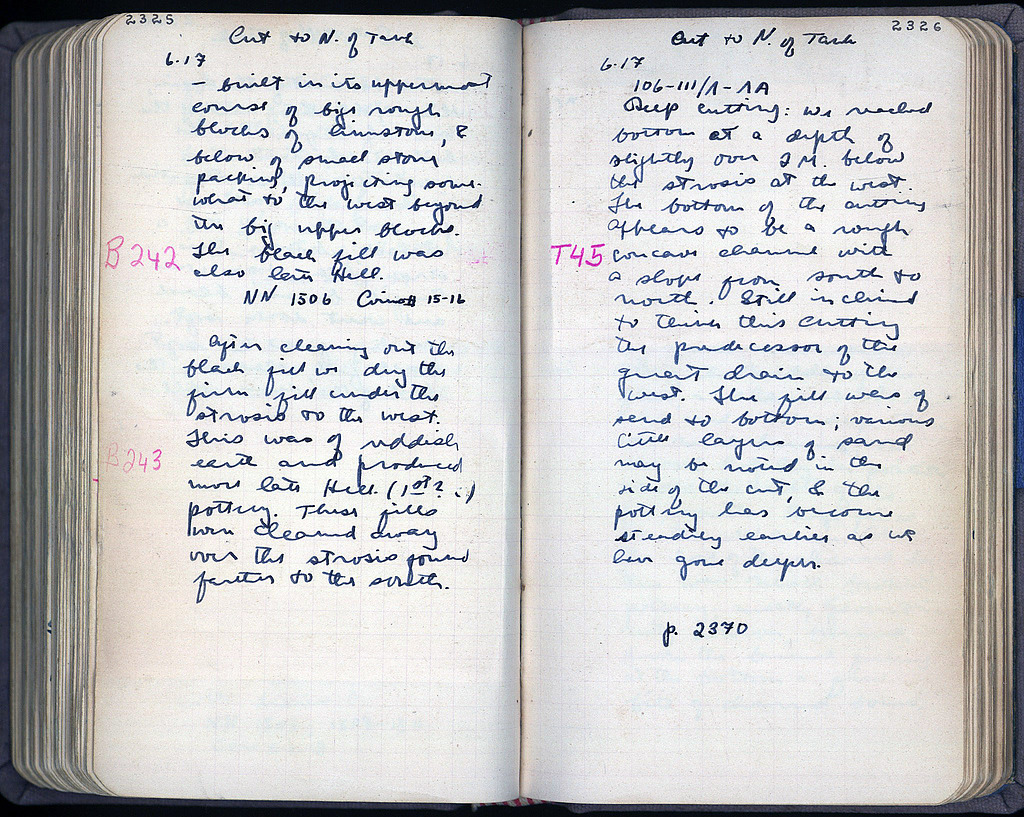 2325
Cut to N. of Tank
6.17
– built in its uppermost
course of big rough
blocks of limestone, &
below of small stone
packing, projecting some-
what to the west beyond
the big upper blocks.
B242 The black fill was
also late Hell.
NN 1506 Coins 15-16
After cleaning out the
black fill we dug the
fill under the
strosis to the west.
This was of reddish
B243 earth and produced
more late Hell. (1st? c.)
pottery. These fills
were cleaned away
over the strosis found
farther to the south.
2326
Cut to N. of Tank
6.17
106-III/1-1A
Deep cutting: we reached
bottom at a depth of
slightly over 2 M. below
the strosis at the west.
The bottom of the cutting
appears to be a rough
T45 concave channel with
a slope from south to
north. Still inclined
to think this cutting
the predecessor of the
great drain to the
west. The fill was of
sand to bottom; various
little layers of sand
may be noted in the
side of the cut, & the
pottery has become
steadily earlier as we
have gone deeper.
p. 2370